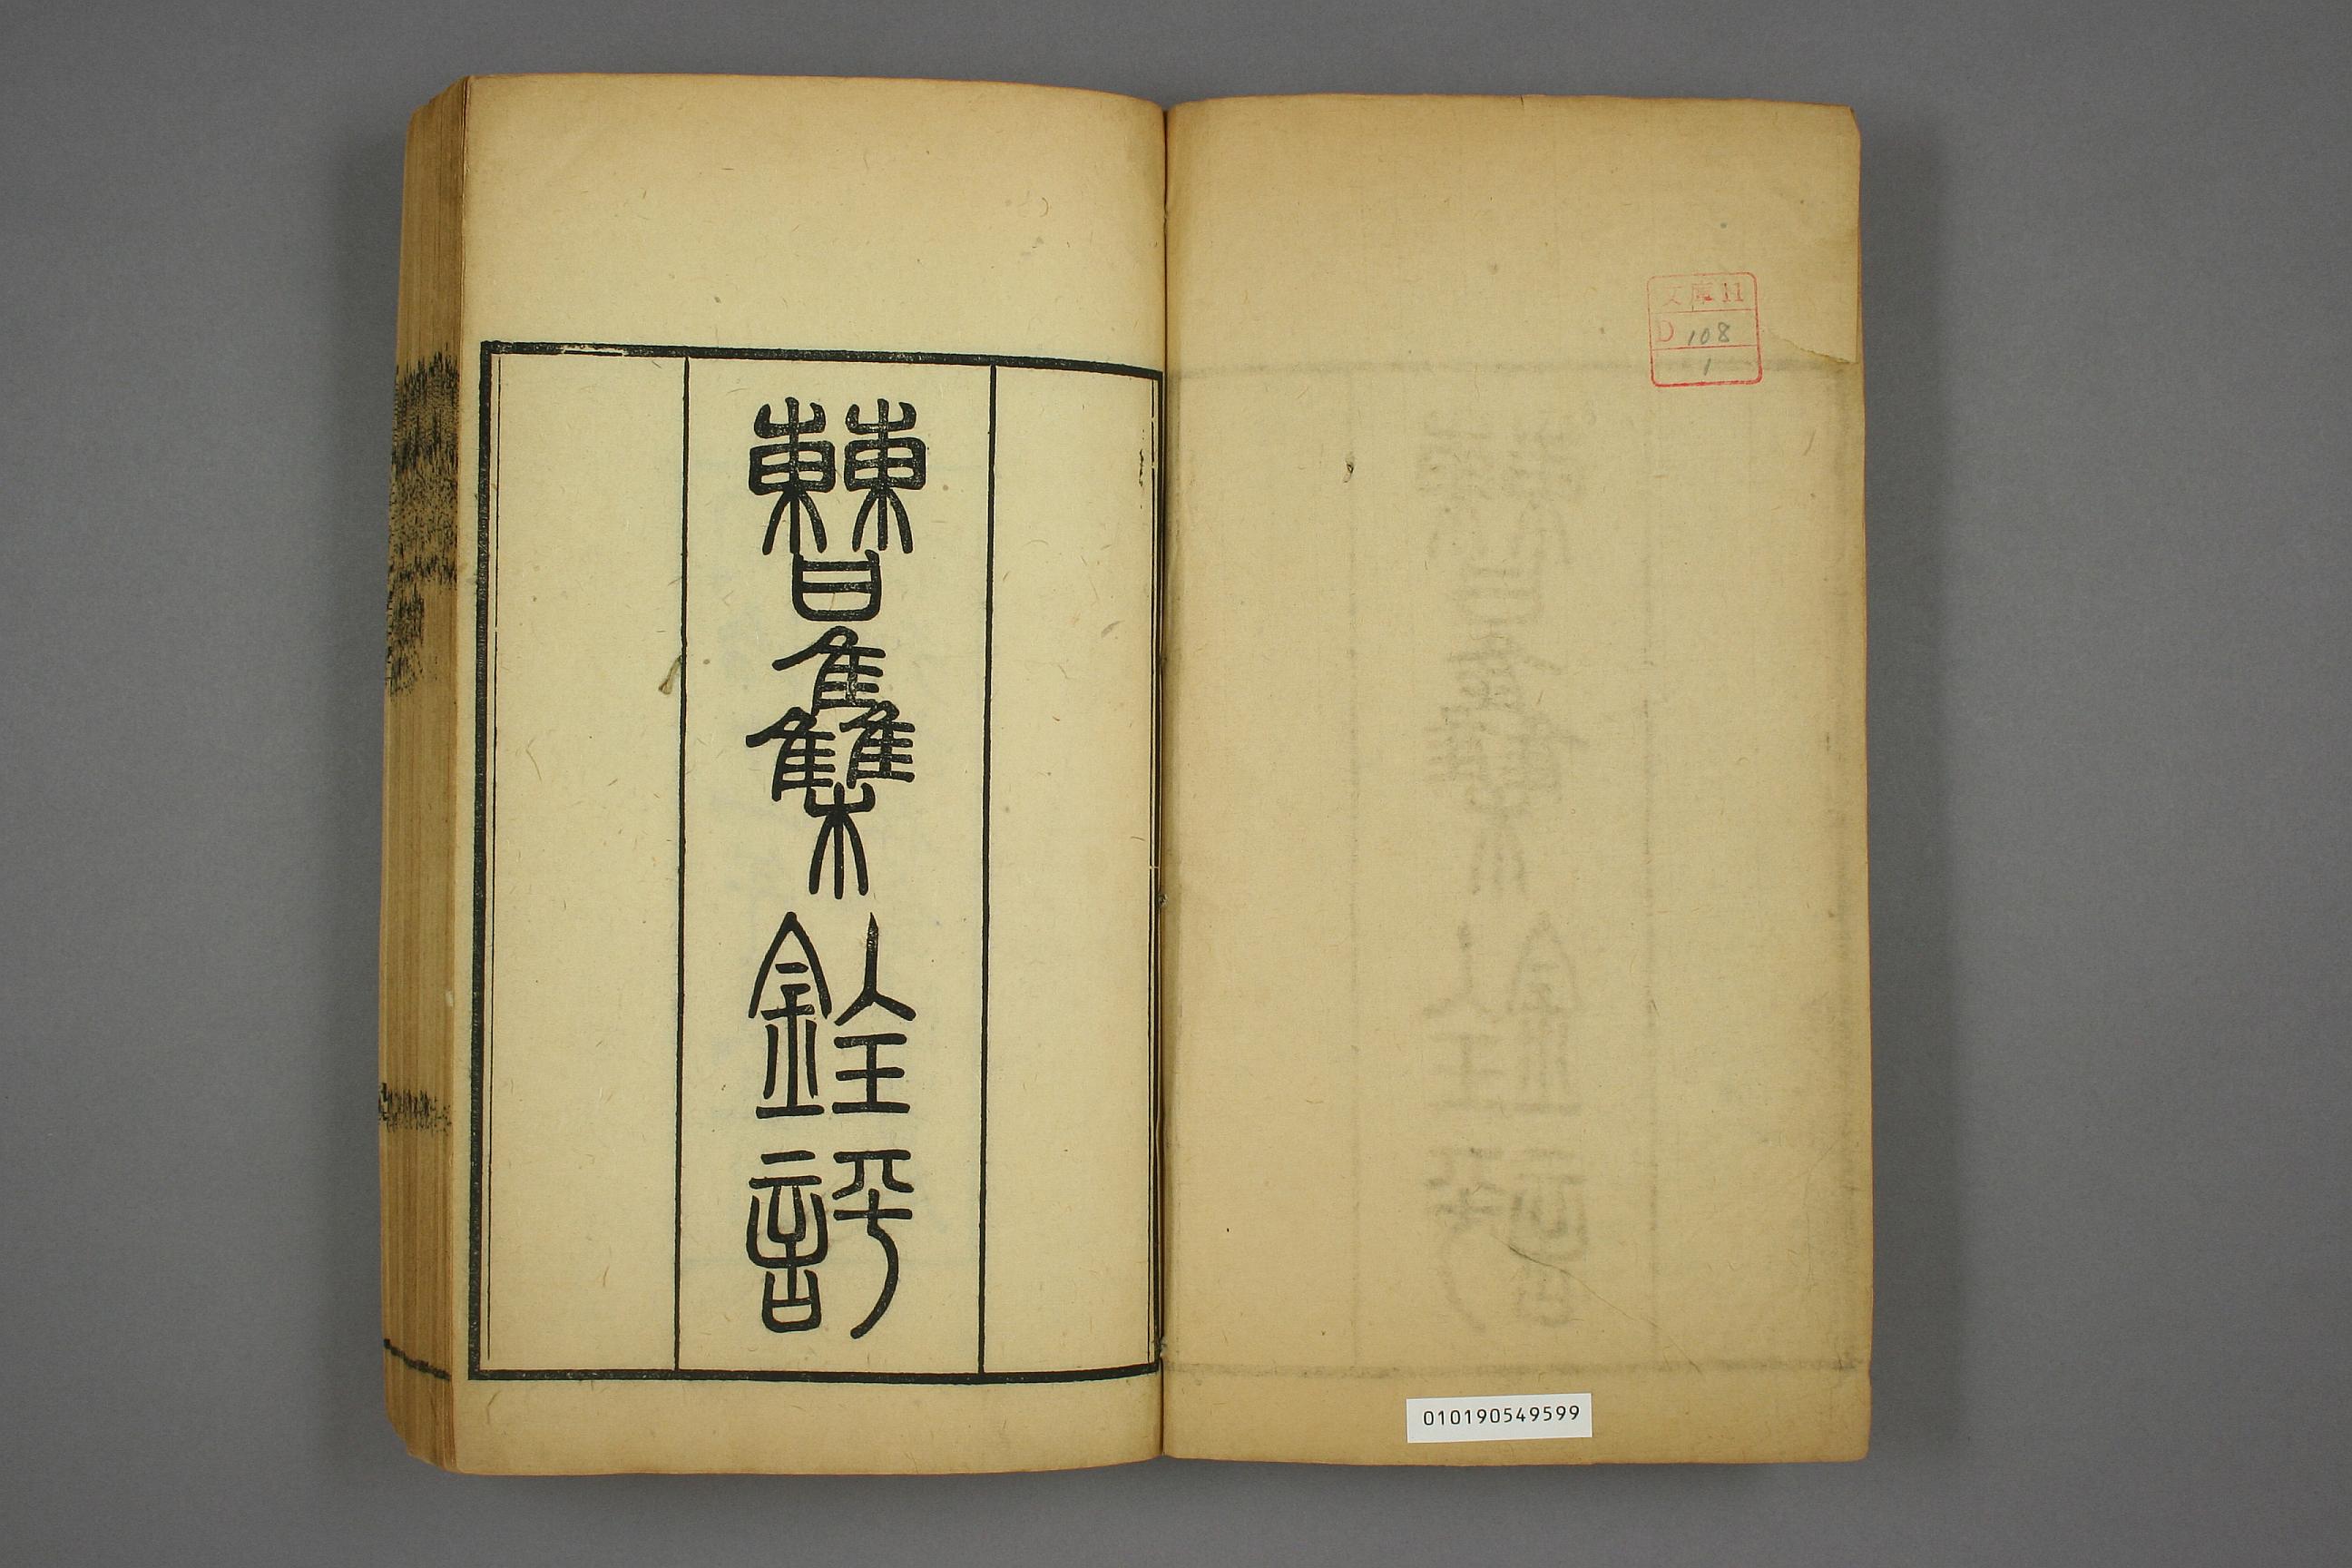 文庫11
D 108
1
010190549599
曹集銓評